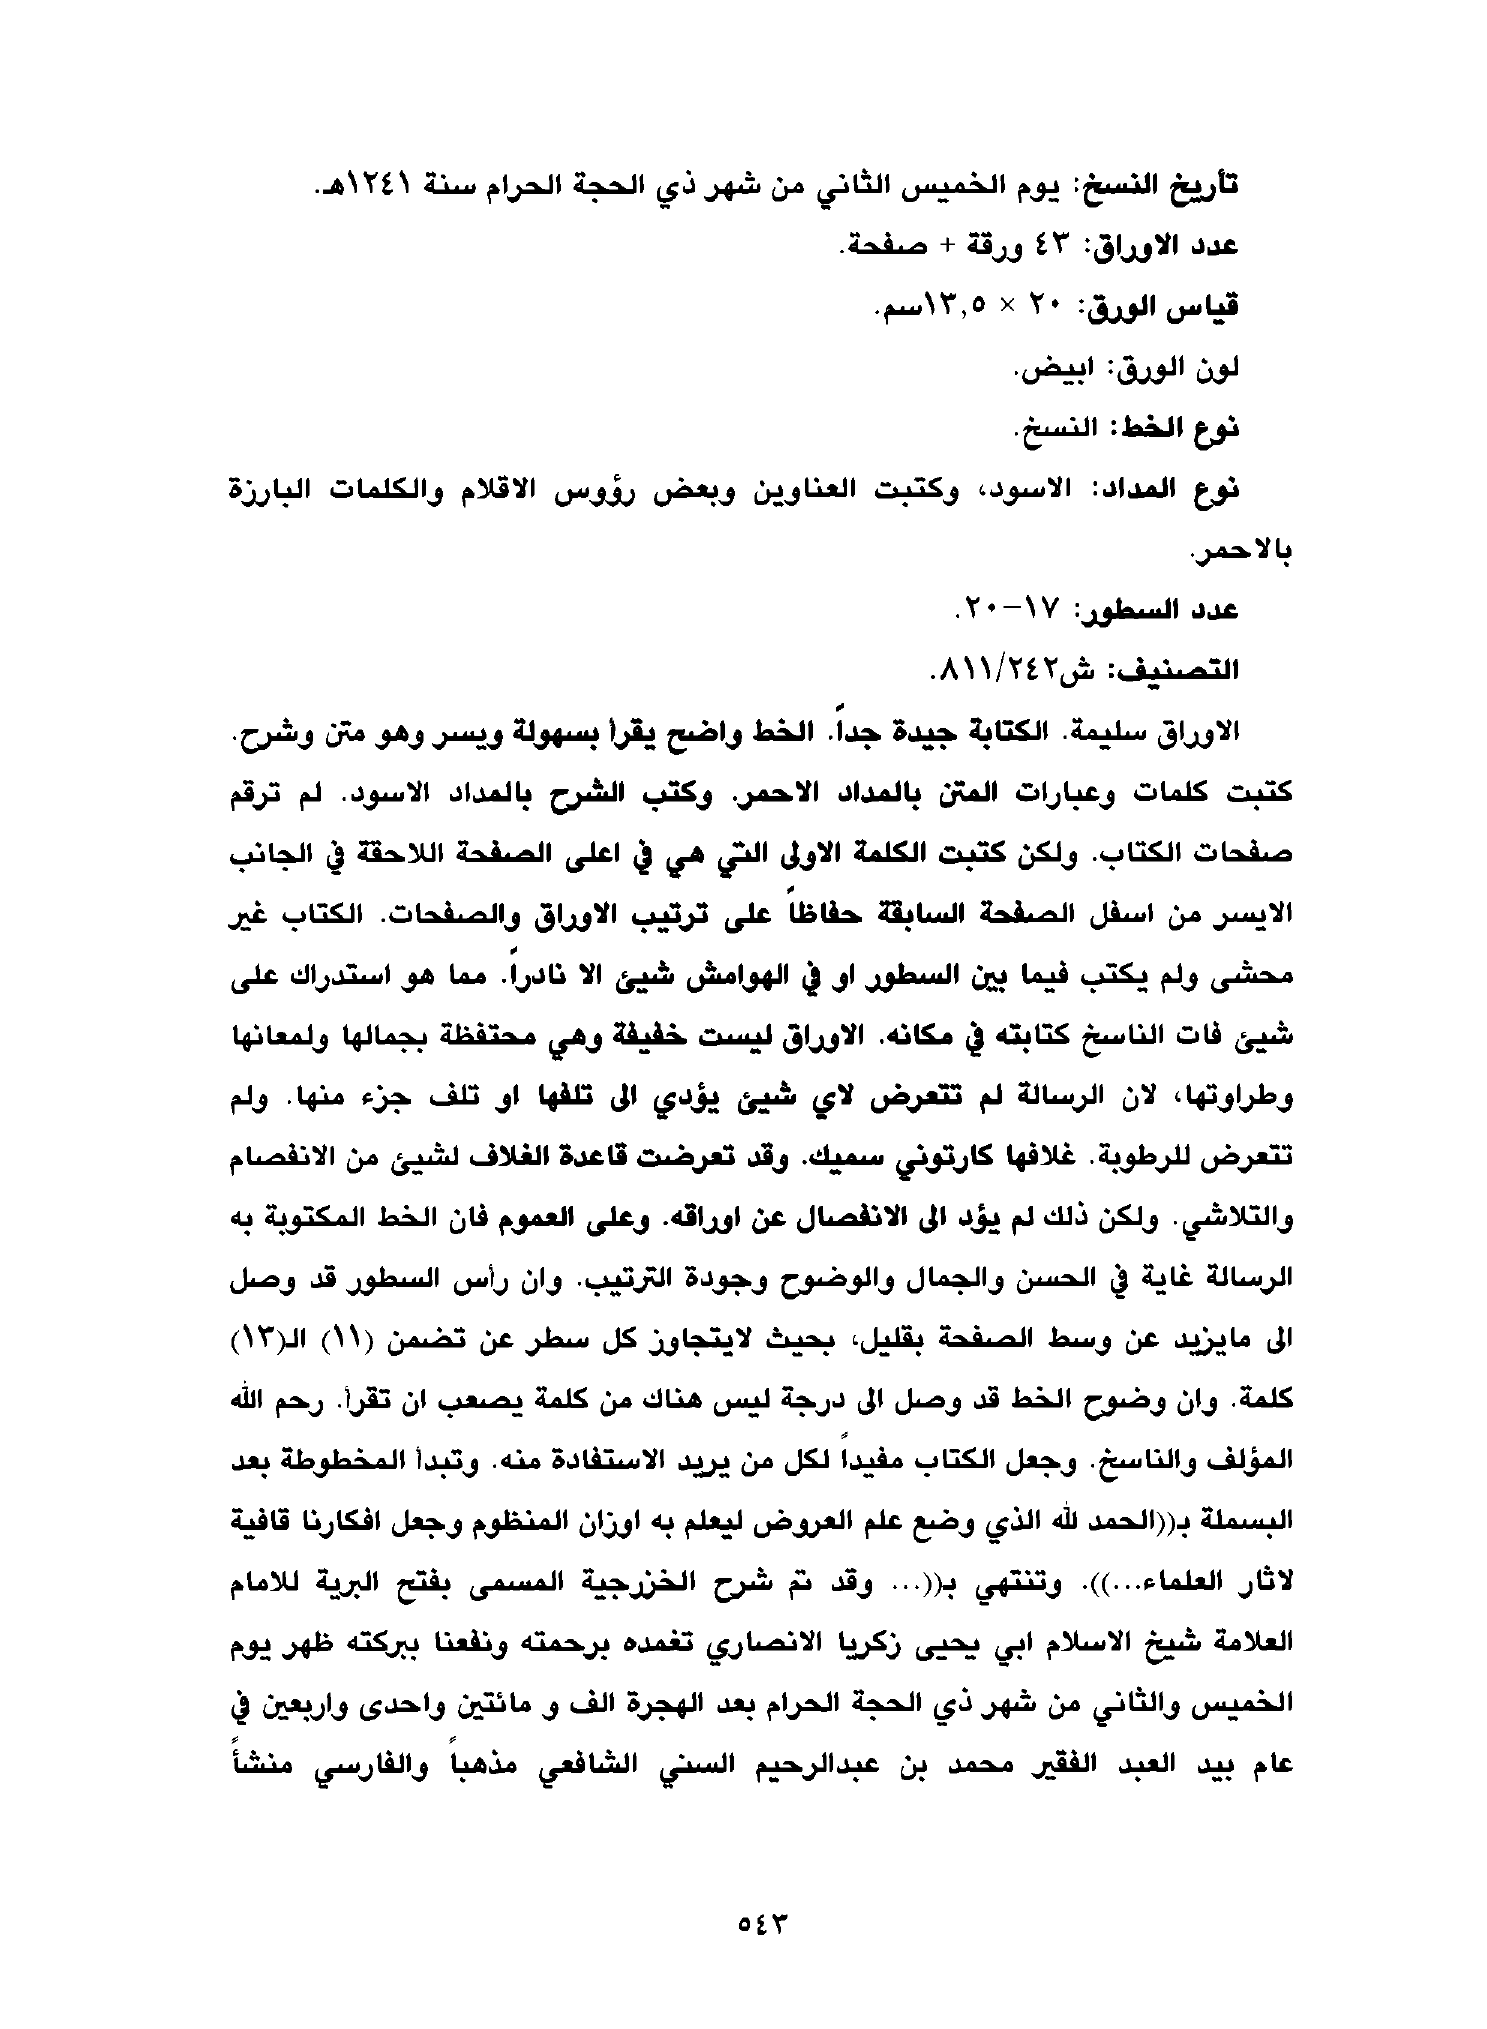 تأريخ النسخ: يوم الخميس الثاني من شهر ذي الحجة الحرام سنة ١٢٤١هـ.
عدد الاوراق: ٤٣ ورقة + صفحة.
قياس الورق: ٢٠ × ١٣,٥سم.
لون الورق: ابيض.
نوع الخط: النسخ.
نوع المداد: الاسود، وكتبت العناوين وبعض رؤوس الاقلام والكلمات البارزة
بالاحمر.
عدد السطور: ١٧-٢٠.
التصنيف: ش٨١١/٢٤٢.
الاوراق سليمة. الكتابة جيدة جداً. الخط واضح يقرأ بسهولة ويسر وهو متن وشرح.
كتبت كلمات وعبارات المتن بالمداد الاحمر. وكتب الشرح بالمداد الاسود. لم ترقم
صفحات الكتاب. ولكن كتبت الكلمة الاولى التي هي في اعلى الصفحة اللاحقة في الجانب
الايسر من اسفل الصفحة السابقة حفاظاً على ترتيب الاوراق والصفحات. الكتاب غير
محشى ولم يكتب فيما بين السطور او في الهوامش شيئ الا نادراً. مما هو استدراك على
شيئ فات الناسخ كتابته في مكانه. الاوراق ليست خفيفة وهي محتفظة بجمالها ولمعانها
وطراوتها، لان الرسالة لم تتعرض لاي شيئ يؤدي الى تلفها او تلف جزء منها. ولم
تتعرض للرطوبة. غلافها كارتوني سميك. وقد تعرضت قاعدة الغلاف لشيئ من الانفصام
والتلاشي. ولكن ذلك لم يؤد الى الانفصال عن اوراقه. وعلى العموم فان الخط المكتوبة به
الرسالة غاية في الحسن والجمال والوضوح وجودة الترتيب. وان رأس السطور قد وصل
الى مايزيد عن وسط الصفحة بقليل، بحيث لايتجاوز كل سطر عن تضمن (١١) الـ(١٣)
كلمة. وان وضوح الخط قد وصل الى درجة ليس هناك من كلمة يصعب ان تقرأ. رحم الله
المؤلف والناسخ. وجعل الكتاب مفيداً لكل من يريد الاستفادة منه. وتبدأ المخطوطة بعد
البسملة بـ((الحمد لله الذي وضع علم العروض ليعلم به اوزان المنظوم وجعل افكارنا قافية
لاثار العلماء...)). وتنتهي بـ((... وقد تم شرح الخزرجية المسمى بفتح البرية للامام
العلامة شيخ الاسلام ابي يحيى زكريا الانصاري تغمده برحمته ونفعنا ببركته ظهر يوم
الخميس والثاني من شهر ذي الحجة الحرام بعد الهجرة الف و مائتين واحدى واربعين في
عام بيد العبد الفقير محمد بن عبدالرحيم السني الشافعي مذهباً والفارسي منشأً
٥٤٣